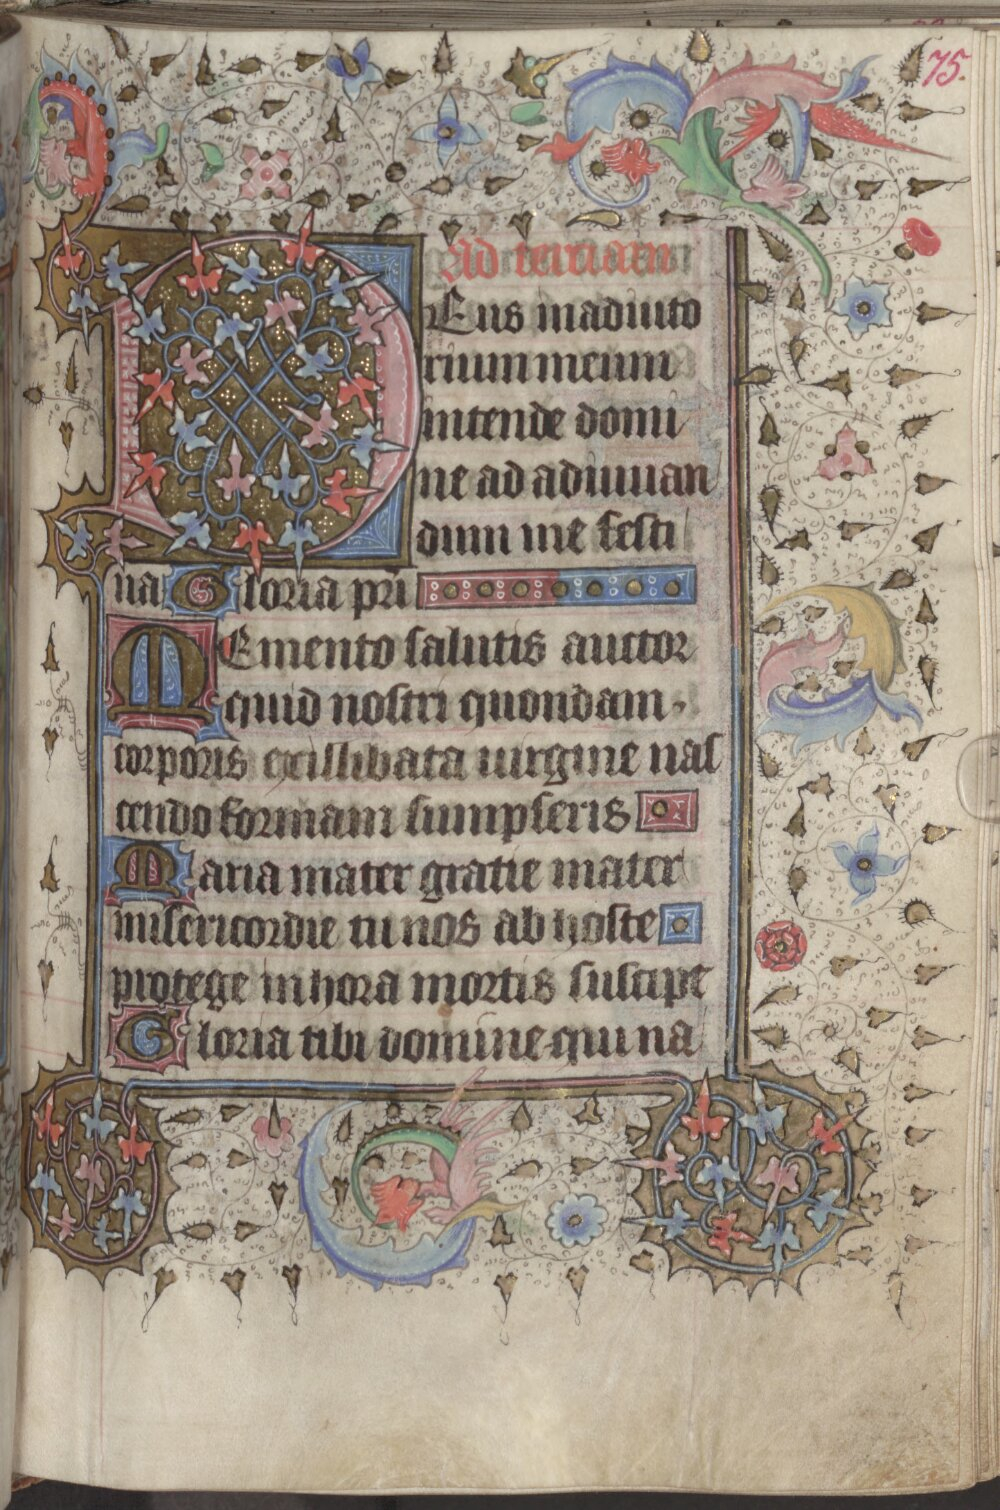 75.
Ad terciam
DEus in adiuto
rium meum
intende domi
ne ad adiuuan
dum me festi
na Gloria pri
MEmento salutis auctor
quid nostri quondam
corporis ex illibata uirgine nas
cendo formam sumpseris
Maria mater gratie mater
misericordie tu nos ab hoste
protege in hora mortis suscipe
Gloria tibi domine qui na